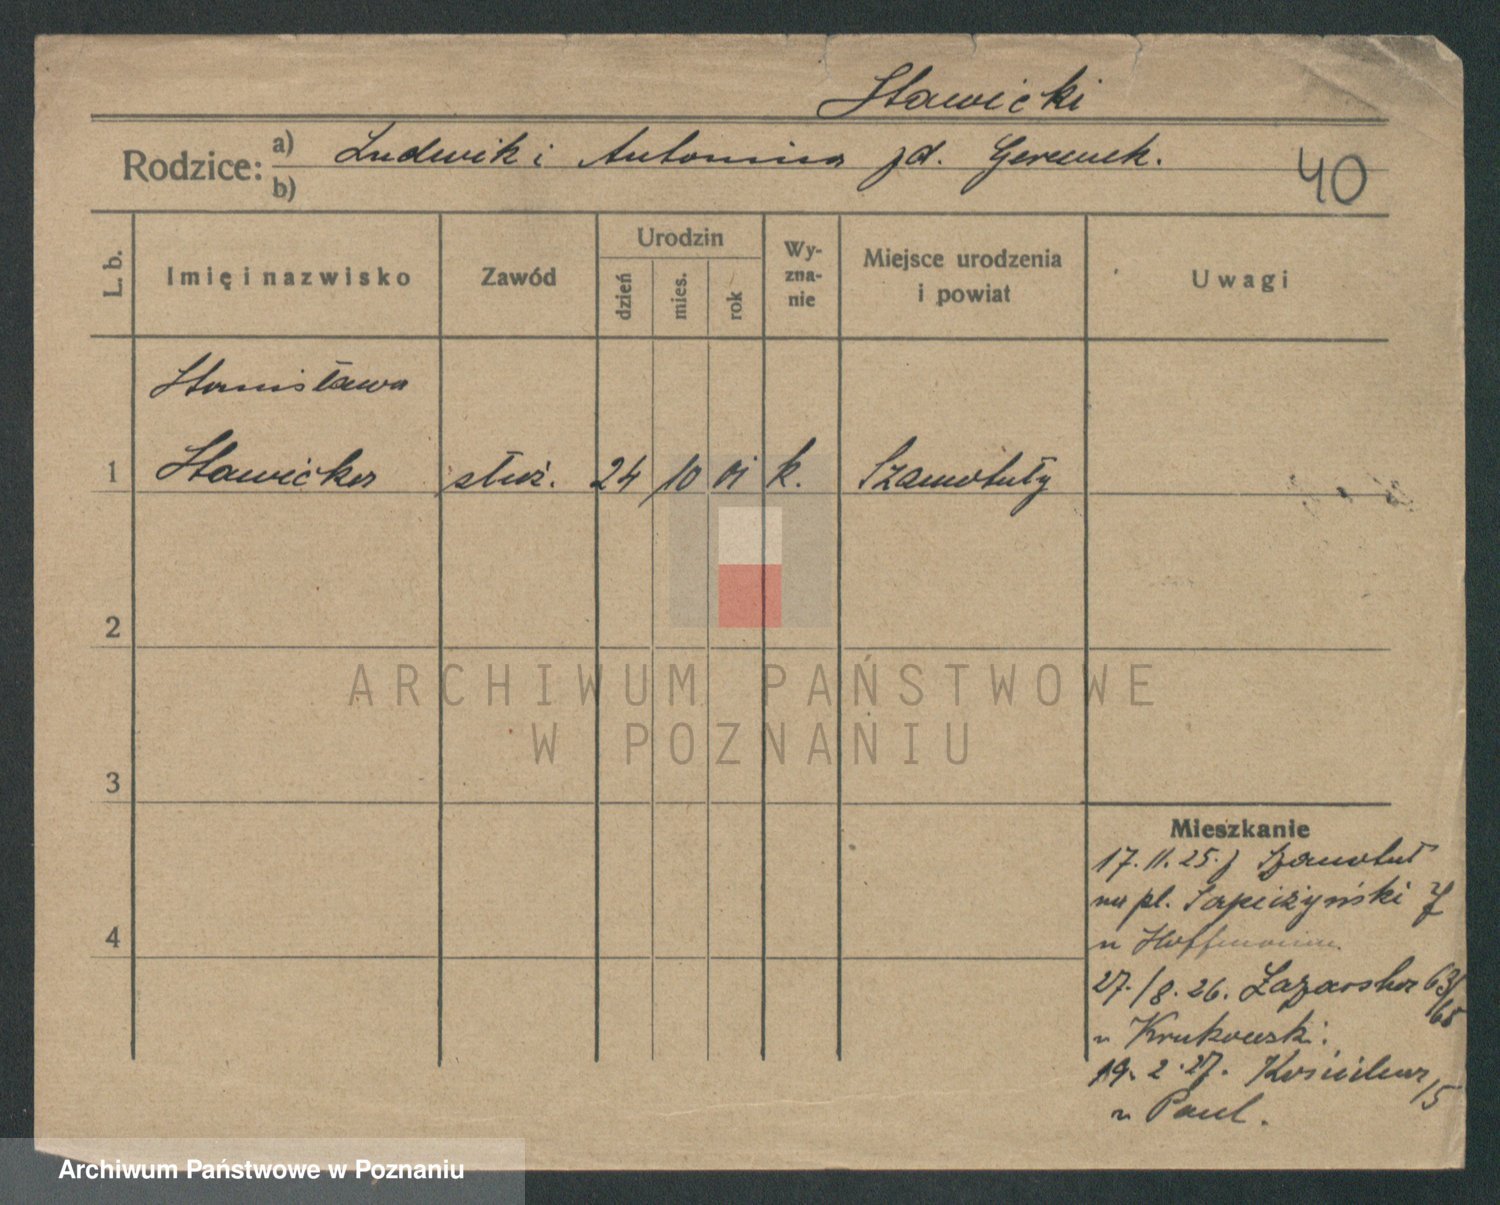 Sławicki
Rodzice: a) Ludwik i Antonina zd. Geremek.
b)
40
L. b.
Imię i nazwisko
Zawód
Urodzin
dzień
mies.
rok
Wy-
zna-
nie
Miejsce urodzenia
i powiat
Uwagi
Stanisława
1 Sławicka służ. 24 10 01 k. Szamotuły
2
3
4
ARCHIWUM PAŃSTWOWE
W POZNANIU
Mieszkanie
17. 11. 25. z Szamotuł
na pl. Sapieżyński 7
u Hoffmann
27./8. 26. Łazarska
u Krukowski.
19. 2. 27.
u Paul.
Archiwum Państwowe w Poznaniu